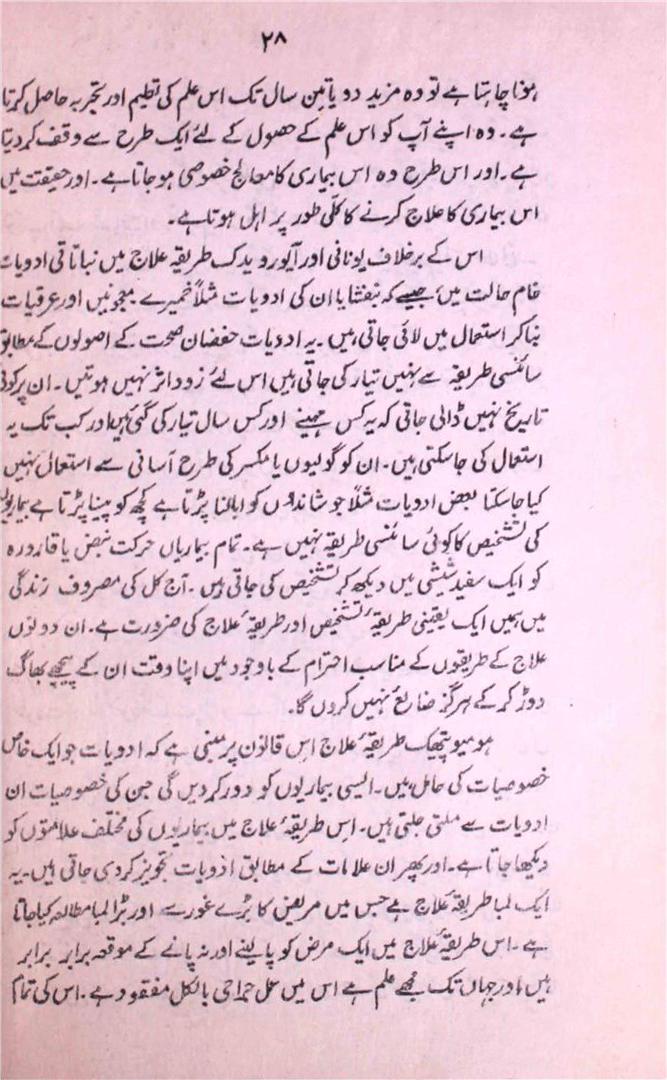 ۲۸
ہونا چاہتا ہے تو وہ مزید دو یا تین سال تک اس علم کی تعلیم اور تجربہ حاصل کرتا
ہے۔ وہ اپنے آپ کو اس علم کے حصول کے لئے ایک طرح سے وقف کر دیتا
ہے۔ اور اس طرح وہ اس بیماری کا معالج خصوصی ہو جاتا ہے۔ اور حقیقت میں
اس بیماری کا علاج کرنے کا کلّی طور پر اہل ہوتا ہے۔
اس کے برخلاف یونانی اور آیورویدک طریقۂ علاج میں نباتاتی ادویات
خام حالت میں جیسے کہ بنفشا یا ان کی ادویات مثلاً خمیرے معجونیں اور عرقیات
بنا کر استعمال میں لائی جاتی ہیں۔ یہ ادویات حفضان صحت کے اصولوں کے مطابق
سائنسی طریقہ سے نہیں تیار کی جاتی ہیں اس لئے زود اثر نہیں ہوتیں۔ ان پر کوئی
تاریخ نہیں ڈالی جاتی کہ یہ کس مہینے اور کس سال تیار کی گئی ہیں اور کب تک یہ
استعمال کی جا سکتی ہیں۔ ان کو گولیوں یا مکسچر کی طرح آسانی سے استعمال نہیں
کیا جا سکتا بعض ادویات مثلاً جوشاندوں کو ابالنا پڑتا ہے کچھ کو پینا پڑتا ہے بیماریوں
کی تشخیص کا کوئی سائنسی طریقہ نہیں ہے۔ تمام بیماریاں حرکت نبض یا قارورہ
کو ایک سفید شیشی میں دیکھ کر تشخیص کی جاتی ہیں۔ آج کل کی مصروف زندگی
میں ہمیں ایک یقینی طریقۂ تشخیص اور طریقۂ علاج کی ضرورت ہے۔ ان دونوں
علاج کے طریقوں کے مناسب احترام کے باوجود میں اپنا وقت ان کے پیچھے بھاگ
دوڑ کر کے ہرگز ضایع نہیں کروں گا۔
ہومیوپتھیک طریقۂ علاج اس قانون پر مبنی ہے کہ ادویات جو ایک خاص
خصوصیات کی حامل ہیں۔ ایسی بیماریوں کو دور کر دیں گی جن کی خصوصیات ان
ادویات سے ملتی جلتی ہیں۔ اس طریقۂ علاج میں بیماریوں کی مختلف علامتوں کو
دیکھا جاتا ہے۔ اور پھر ان علامات کے مطابق ادویات تجویز کر دی جاتی ہیں۔ یہ
ایک لمبا طریقۂ علاج ہے جس میں مریض کا بڑے غور سے اور بڑا لمبا مطالعہ کیا جاتا
ہے۔ اس طریقۂ علاج میں ایک مرض کو پا لینے اور نہ پانے کے موقعہ برابر برابر
ہیں اور جہاں تک مجھے علم ہے اس میں عمل جراحی بالکل مفقود ہے۔ اس کی تمام